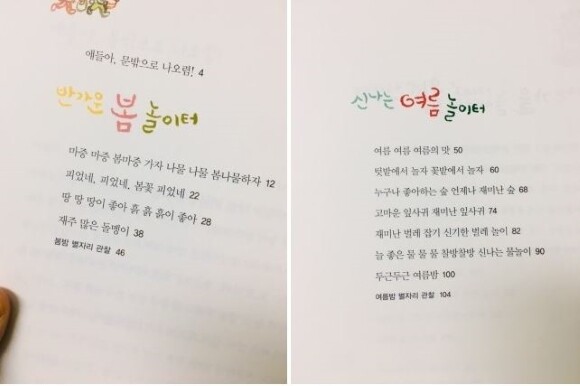 얘들아, 문밖으로 나오렴! 4
반가운 봄 놀이터
마중 마중 봄마중 가자 나물 나물 봄나물하자 12
피었네, 피었네, 봄꽃 피었네 22
땅 땅 땅이 좋아 흙 흙 흙이 좋아 28
재주 많은 돌멩이 38
봄밤 별자리 관찰 46
신나는 여름 놀이터
여름 여름 여름의 맛 50
텃밭에서 놀자 꽃밭에서 놀자 60
누구나 좋아하는 숲 언제나 재미난 숲 68
고마운 잎사귀 재미난 잎사귀 74
재미난 벌레 잡기 신기한 벌레 놀이 82
늘 좋은 물 물 물 찰방찰방 신나는 물놀이 90
두근두근 여름밤 100
여름밤 별자리 관찰 104